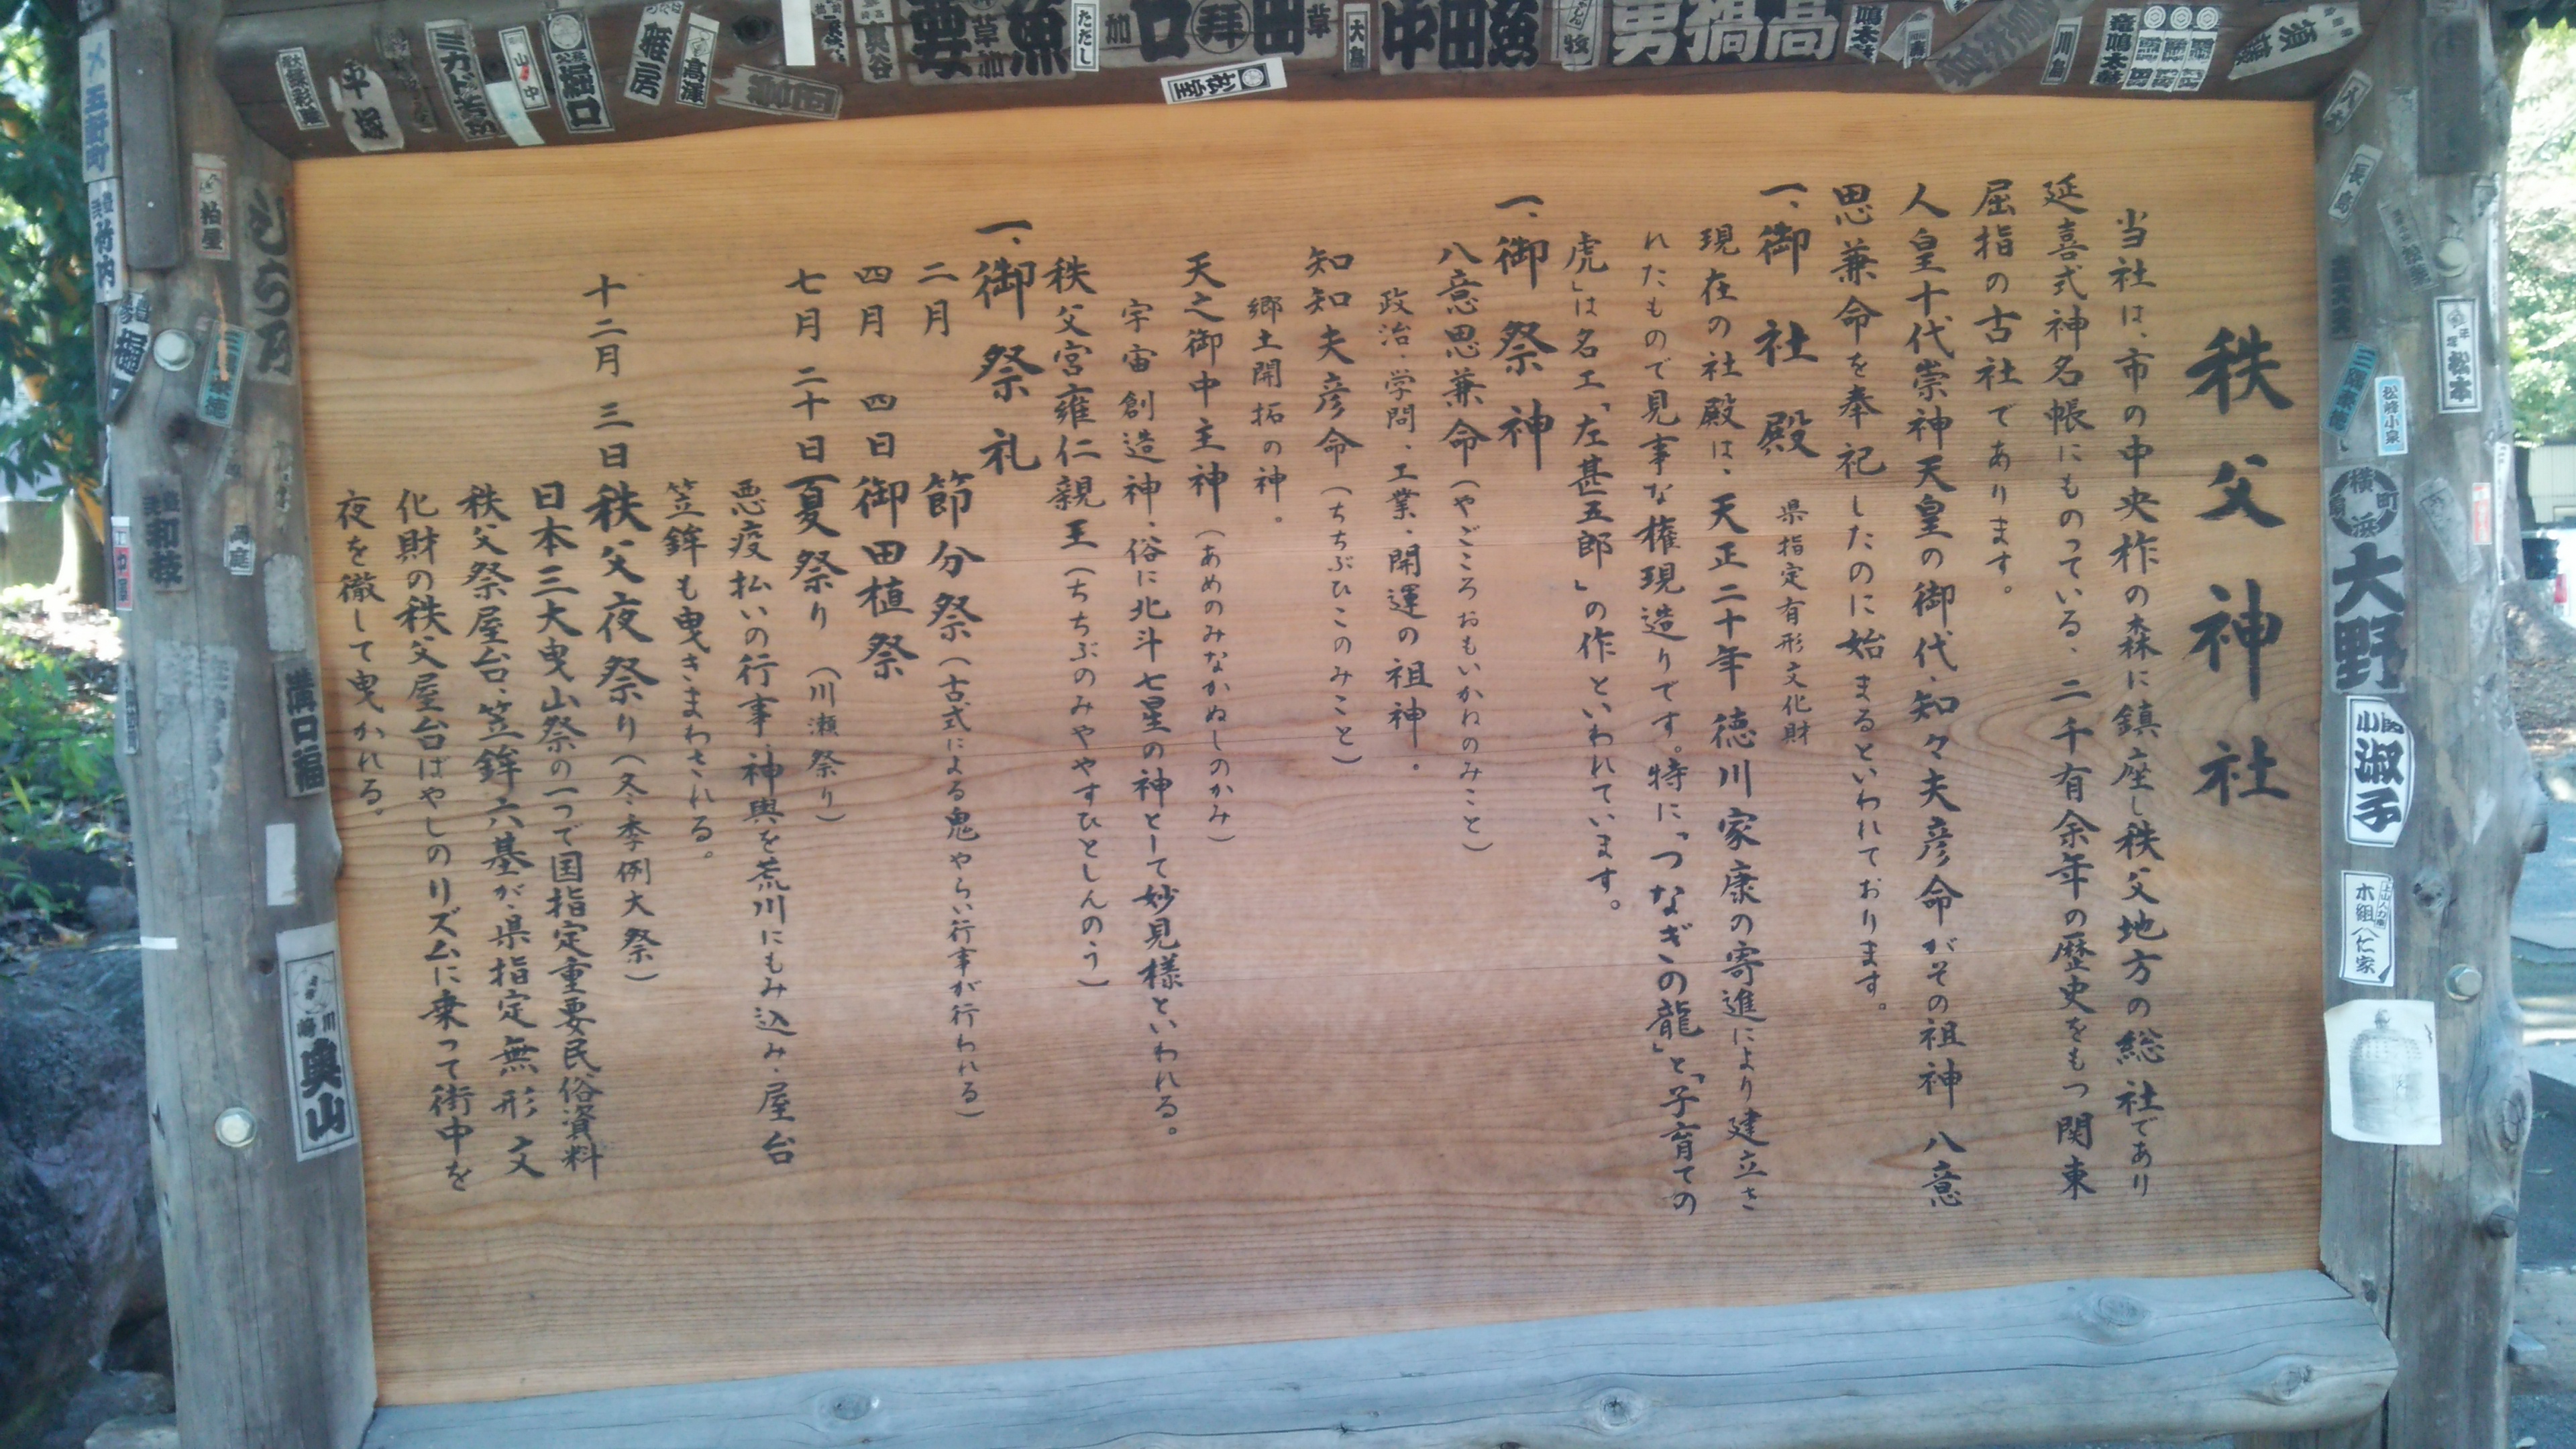 秩父神社
当社は、市の中央柞の森に鎮座し秩父地方の総社であり
延喜式神名帳にものっている、二千有余年の歴史をもつ関東
屈指の古社であります。
人皇十代崇神天皇の御代、知々夫彦命がその祖神 八意
思兼命を奉祀したのに始まるといわれております。
一、御社殿 県指定有形文化財
現在の社殿は、天正二十年 徳川家康の寄進により建立さ
れたもので見事な権現造りです。特に「つなぎの龍」と「子育ての
虎」は名工「左甚五郎」の作といわれています。
一、御祭神
八意思兼命(やごころおもいかねのみこと)
政治、学問、工業、開運の祖神。
知知夫彦命(ちちぶひこのみこと)
郷土開拓の神。
天之御中主神(あめのみなかぬしのかみ)
宇宙創造神、俗に北斗七星の神として妙見様といわれる。
秩父宮雍仁親王(ちちぶのみややすひとしんのう)
一、御祭礼
二月 節分祭(古式による鬼やらい行事が行われる)
四月 四日 御田植祭
七月 二十日 夏祭り (川瀬祭り)
悪疫払いの行事、神輿を荒川にもみ込み、屋台
笠鉾も曳きまわされる。
十二月 三日 秩父夜祭り(冬季例大祭)
日本三大曳山祭の一つで国指定重要民俗資料
秩父祭屋台、笠鉾六基が、県指定無形文
化財の秩父屋台ばやしのリズムに乗って街中を
夜を徹して曳かれる。
平塚
堀口
雅房
高澤
ただし
大島
中田
男
高
川島
五野町
竹内
柏屋
溝口福
奥山
長島
松本
松峰小泉
横浜
町
大野
淑子
木組
仁家